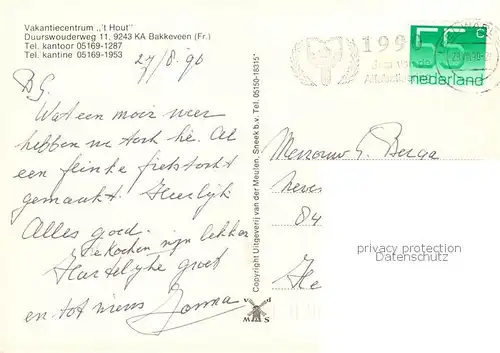 Vakantiecentrum ,,'t Hout''
Duurswouderweg 11, 9243 KA Bakkeveen (Fr.)
Tel. kantoor 05169-1287
Tel. kantine 05169-1953
27/8.'90
B.G.
Wat een mooi weer
hebben we toch hè. Al
een fleinke fietstocht
gemaakt. Heerlijk
Alles goed.
De Koeken zijn lekker
Hartelijke groet
en tot ziens
Copyright Uitgeverij van der Meulen, Sneek b.v. Tel. 05150-16315*
v d
M S
1990
55 c
nederland
Mevrouw G. Berga
84
He
privacy protection
Datenschutz